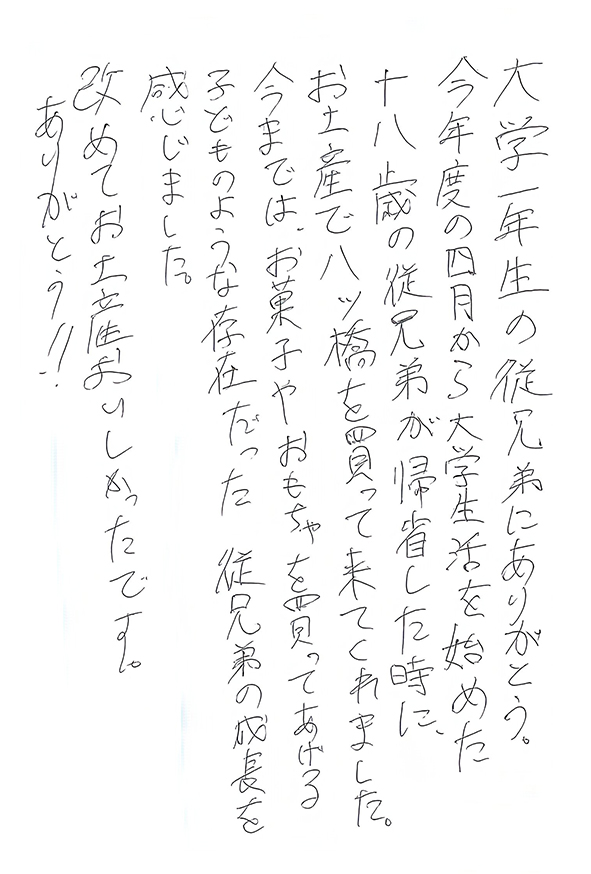 大学一年生の従兄弟にありがとう。
今年度の四月から大学生活を始めた
十八歳の従兄弟が帰省した時に、
お土産で八ッ橋を買って来てくれました。
今までは、お菓子やおもちゃを買ってあげる
子どものような存在だった 従兄弟の成長を
感じました。
改めてお土産おいしかったです。
ありがとう!!